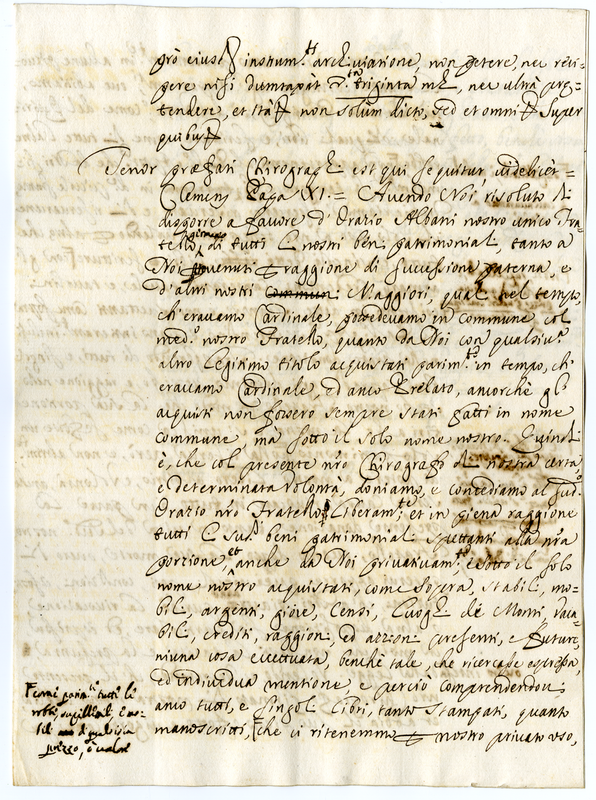 pro eius instrum.ti arch.viatione, non petere, nec reci-
pere nisi dumtaxat triginta m.ta, nec ultrà pre-
tendere, et ità non solum dicto, sed et omni super
quibus
Tenor præfati Chirographi est qui sequitur, videlicèt =
Clemens Papa XI. = Avendo Noi risoluto di
disporre a favore d'Orazio Albani nostro unico Fra-
tello, di tutti li nostri beni patrimoniali, tanto a
Noi pervenuti per raggione di successione paterna, e
d'altri nostri Maggiori, quali nel tempo,
ch'eravamo Cardinale, possedevamo in commune col
med.o nostro Fratello, quanto da Noi con qualsiv.a
altro legitimo titolo acquistati parim.te in tempo, ch'
eravamo Cardinale, ed anco Prelato, ancorchè gl'
acquisti non fossero sempre stati fatti in nome
commune, ma sotto il solo nome nostro. Quindi
è, che col presente n'ro Chirografo di nostra certa,
e determinata volontà, doniamo, e concediamo al sud.o
Orazio n'ro Fratello liberam.te, et in piena raggione
tutti li sud.i beni patrimoniali spettanti alla n'ra
porzione, et anche da Noi privativam.te, e sotto il solo
nome nostro acquistati, come sopra, stabili, mo-
bili, argenti, gioie, Censi, luoghi de Monti, vaca-
bili, crediti, raggioni, ed azzioni presenti, e future,
niuna cosa eccettuata, benchè tale, che ricercasse espressa,
ed individua mentione, e perciò comprendendovi
anco tutti, e singoli libri, tanto stampati, quanto
manoscritti, che ci ritenemmo per nostro privato uso,
come parim.ti tutti li
mobili, suppellettili, e no-
bili di qualsisia
prezzo, ò valore